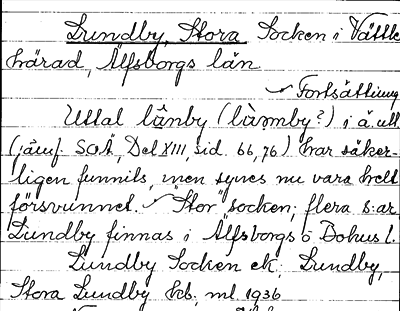 Lundby, Stora Socken i Vättle
härad, Älfsborgs län
Fortsättning
Uttal lûnby (lùnmby?) i ä. utt
(jämf. SOÄ, Del XIII, sid. 66, 76) har säker-
ligen funnits, men synes nu vara helt
försvunnet. "Stor" socken; flera s:ar
Lundby finnas i Älfsborgs o Bohus l.
Lundby Socken ek; Lundby,
Stora Lundby kb, ml. 1936